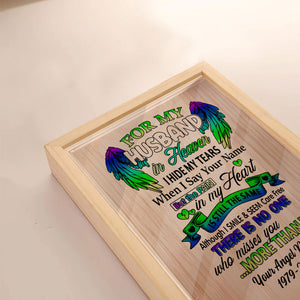 FOR MY
HUSBAND
In Heaven
I HIDE MY TEARS
When I Say Your Name
in my Heart
IS STILL THE SAME
Although I SMILE & SEEM Care Free
THERE IS NO ONE
who misses you
...MORE THAN
Your Angel
1979-